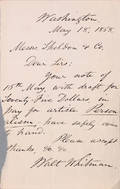 Washington
May 18, 1868.
Messrs Sheldon & Co.
Dear Sirs:
Your note of
15th May, with draft for
Seventy-Five Dollars in
pay for articles Person-
alism have safely come
to hand.
Please accept
thanks, &c. &c.
Walt Whitman